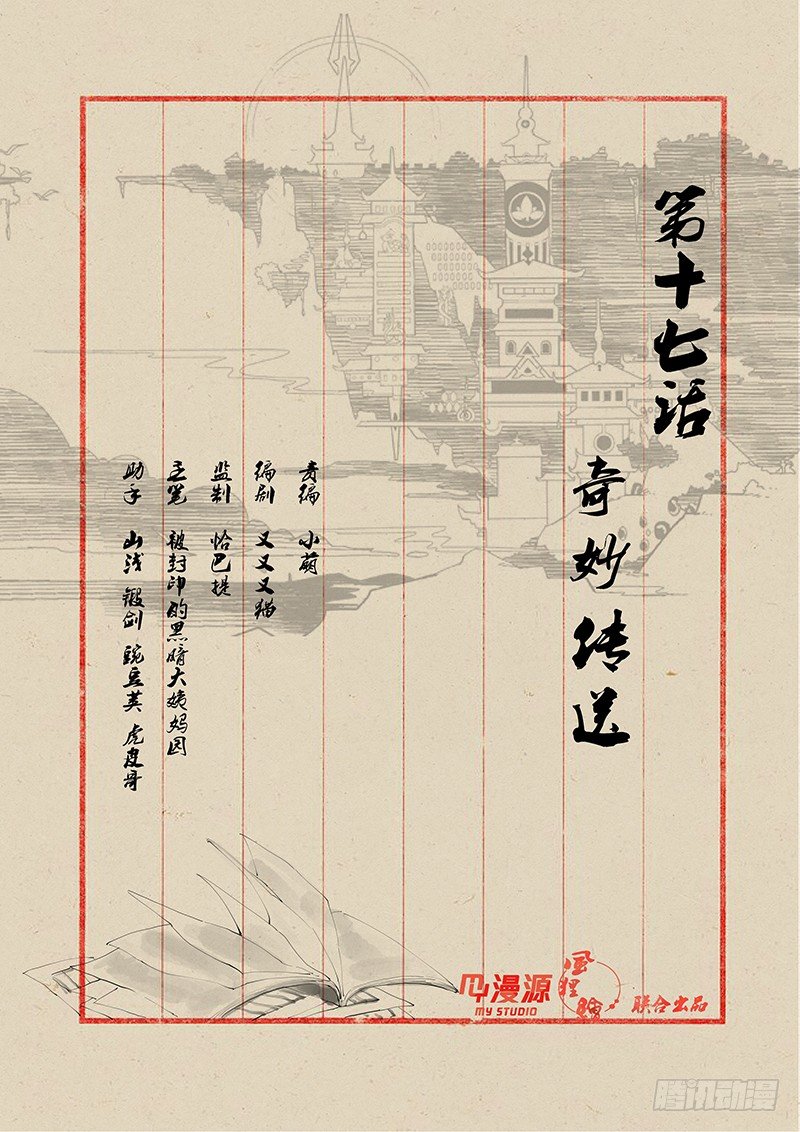 第十七话
奇妙传送
责编 小萌
编剧 又又又猫
监制 恰巴提
主笔 被封印的黑暗大姨妈园
助手 山浅 锻剑 豌豆荚 虎皮哥
漫源
MY STUDIO
联合出品
腾讯动漫